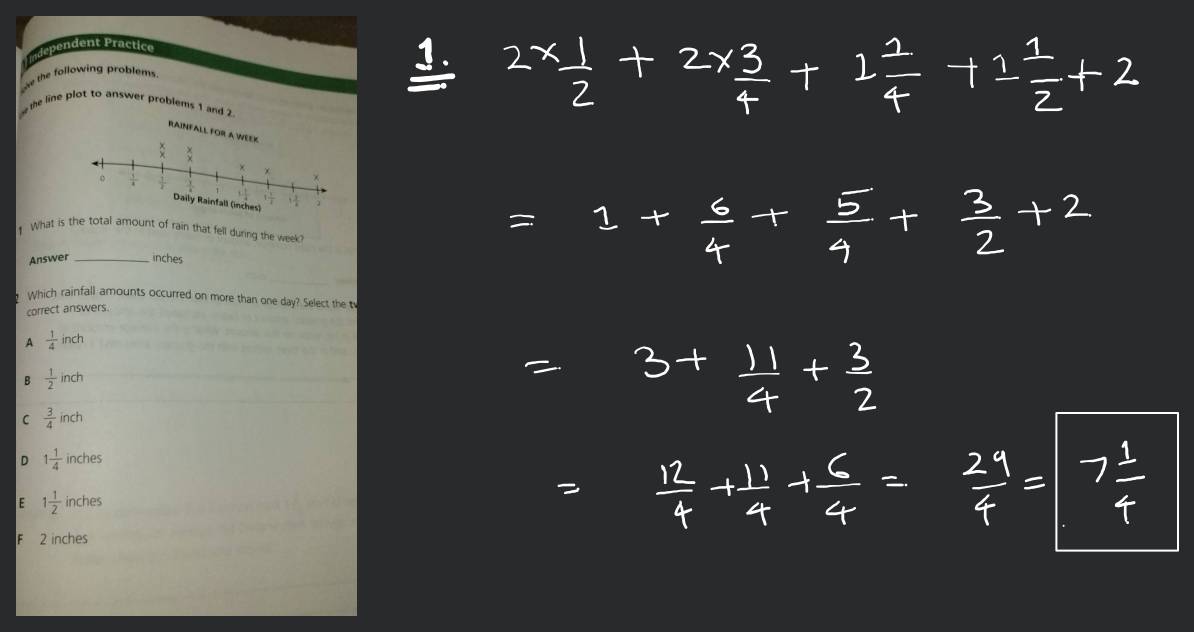 Independent Practice
the following problems.
the line plot to answer problems 1 and 2.
RAINFALL FOR A WEEK
X X X X X X X
0 1/4 1/2 3/4 1 1 1/4 1 1/2 1 3/4 2
Daily Rainfall (inches)
1 What is the total amount of rain that fell during the week?
Answer ________ inches
2 Which rainfall amounts occurred on more than one day? Select the
correct answers.
A 1/4 inch
B 1/2 inch
C 3/4 inch
D 1 1/4 inches
E 1 1/2 inches
F 2 inches
1. 2×1/2 + 2×3/4 + 1 1/4 + 1 1/2 + 2
= 1 + 6/4 + 5/4 + 3/2 + 2
= 3 + 11/4 + 3/2
= 12/4 + 11/4 + 6/4 = 29/4 = 7 1/4